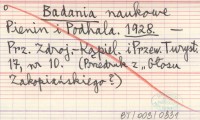 Badania naukowe
Pienin i Podhala. 1928. —
Prz. Zdroj.-Kąpiel. i Przew. Turyst.
17, nr 10. (Przedruk z „Głosu
Zakopiańskiego")
BT/003/0331